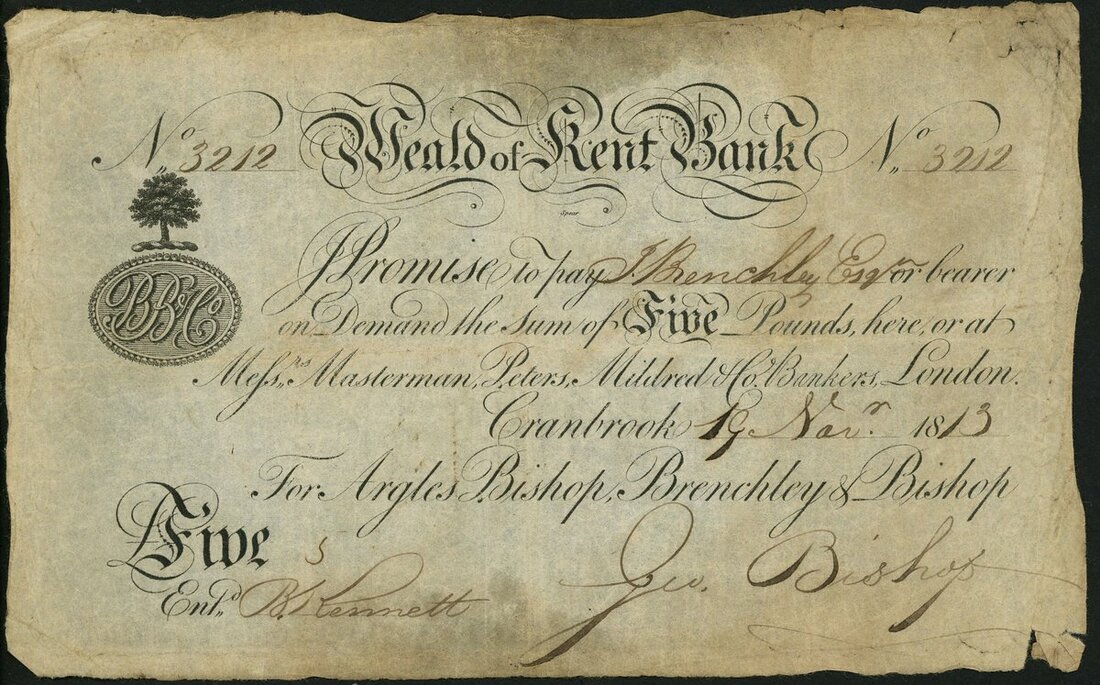 No. 3212 Weald of Kent Bank No. 3212
Spear
BB&Co
I Promise to pay J. Brenchley Esqr. or bearer
on Demand the Sum of Five Pounds, here, or at
Messrs. Masterman, Peters, Mildred & Co. Bankers, London.
Cranbrook 19 Novr. 1813
For Argles Bishop, Brenchley & Bishop
£Five 5
Geo. Bishop
Entd. B. Kennett